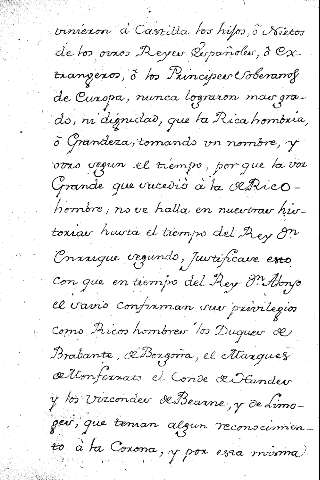 vinieron à Castilla los hijos, ò Nietos
de los otros Reyes Españoles, ò Ex-
trangeros, ò los Principes Soberanos
de Europa, nunca lograron mas gra-
do, ni dignidad, que la Rica hombria,
ò Grandeza; tomando vn nombre, y
otro segun el tiempo, por que la voz
Grande que sucediò à la de Rico-
hombre, no se halla en nuestras his-
torias hasta el tiempo del Rey Dn
Enrique segundo, Justificase esto
con que en tiempo del Rey Dn Alonso
el savio confirman sus privilegios
como Ricos hombres los Duques de
Brabante, de Borgoña, el Marques
de Monferrato el Conde de Flandes
y los Vizcondes de Bearne, y de Limo-
ges, que tenian algun reconocimien-
to à la Corona, y por esta misma